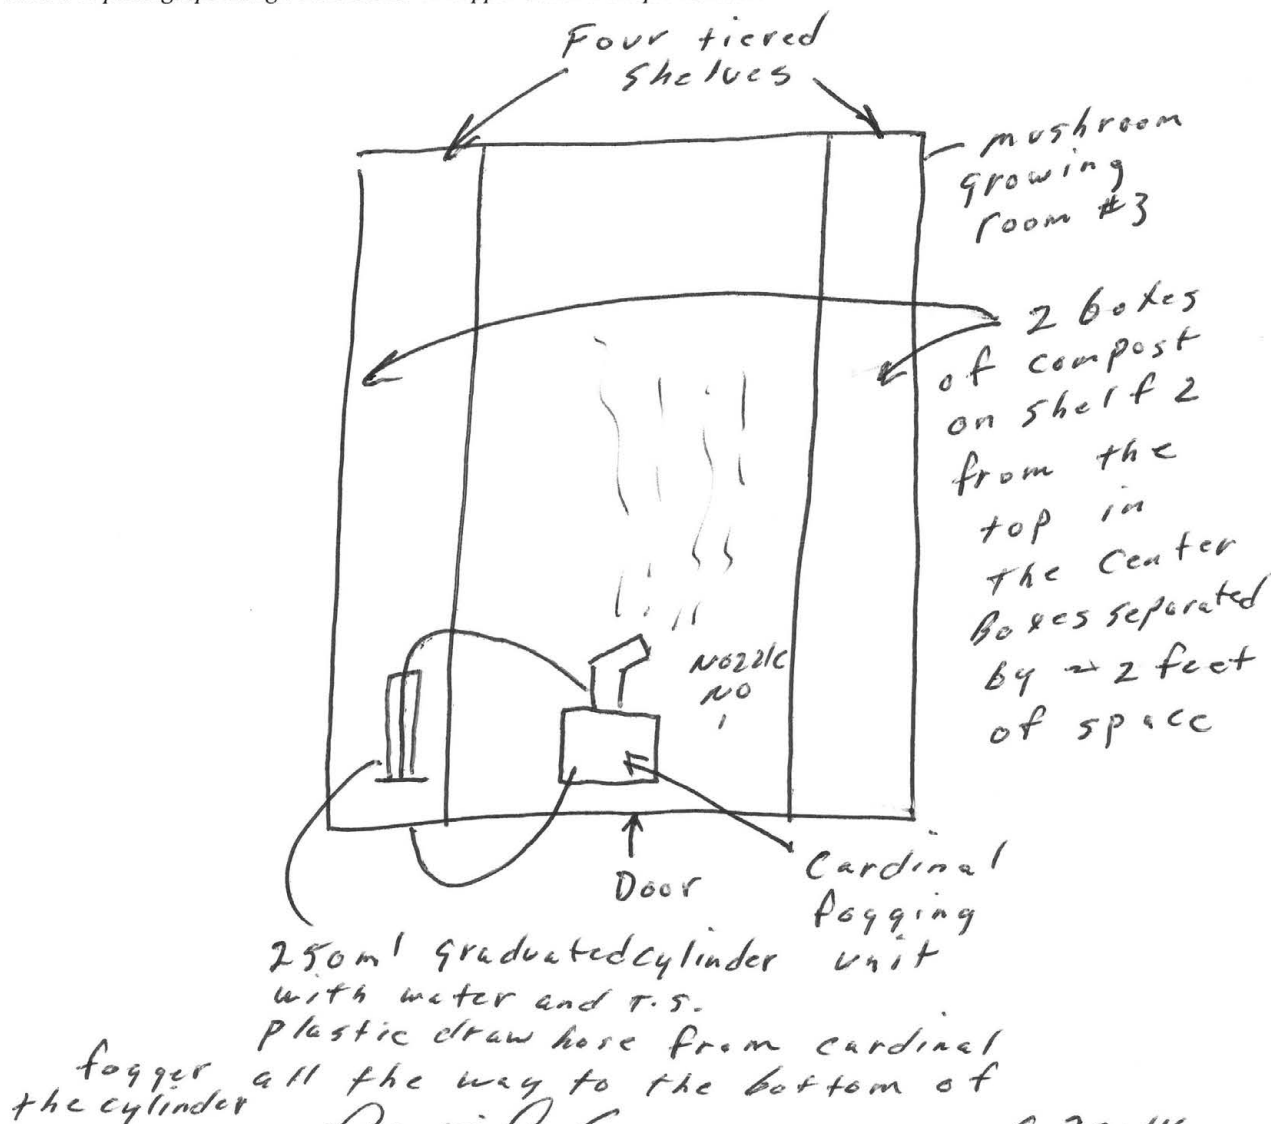 Four tiered
shelves
mushroom
growing
room #3
2 boxes
of compost
on shelf 2
from the
top in
the center
Boxes separated
by ~ 2 feet
of space
Nozzle
No
1
Door
Cardinal
fogging
unit
250ml graduated cylinder
with water and T.S.
plastic draw hose from cardinal
fogger all the way to the bottom of
the cylinder